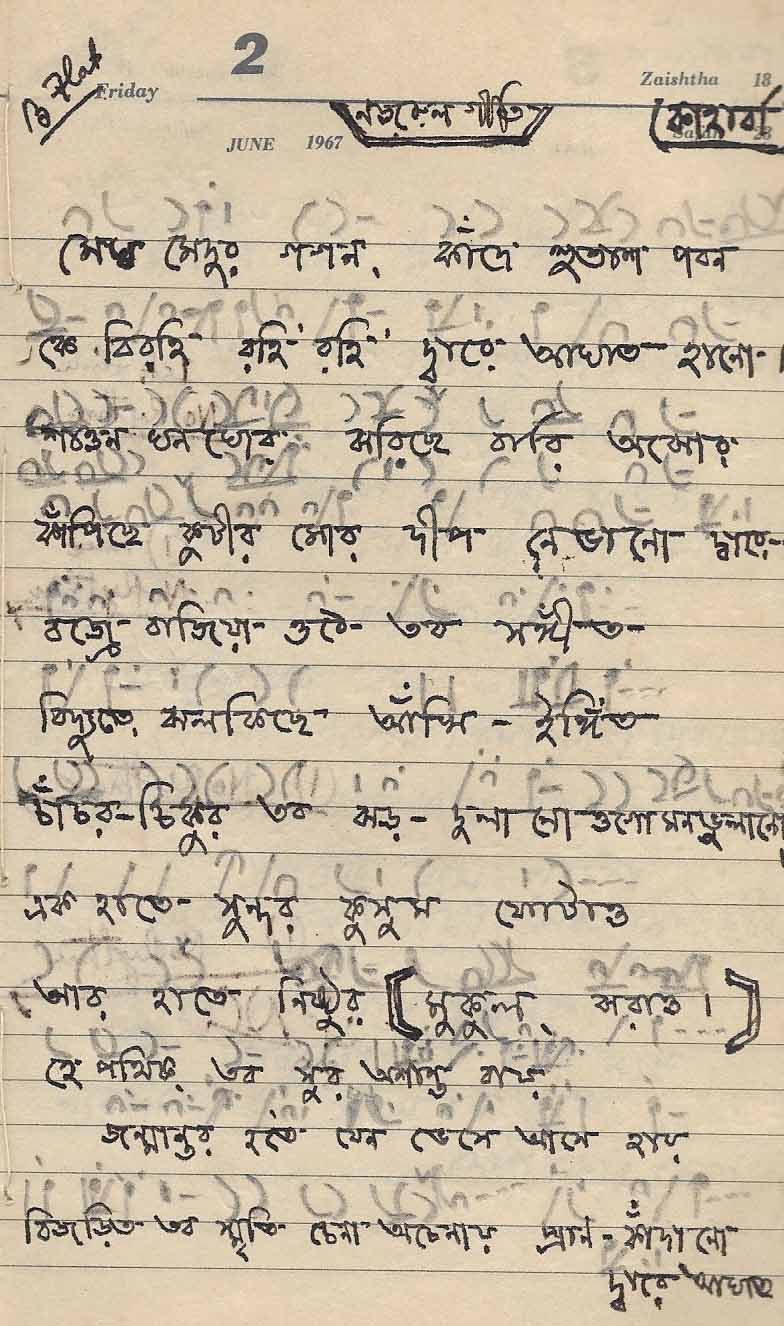 B Flat
2
Friday
Zaishtha 18
JUNE 1967
নজরুল গীতি
কাহারবা
মেঘ মেদুর গগন, কাঁদে হুতাশ পবন
কে বিরহি রহি রহি দ্বারে আঘাত হানো।
শাওন ঘনঘোর ঝরিছে বারি অঝোর
কাঁপিছে কুটীর মোর দীপ নেভানো দ্বারে-
বজ্রে বাজিয়া ওঠে তব সঙ্গীত
বিদ্যুতে ঝলকিছে আঁখি - ইঙ্গিত
চাঁচর-চিকুর তব ঝড় - দুলানো ওগো মনভুলানো
এক হাতে সুন্দর কুসুম ফোটাও
আর হাতে নিষ্ঠুর [মুকুল ঝরাও।]
হে পথিক তব সুর অশান্ত বায়
জন্মান্তর হতে যেন ভেসে আসে হায়
বিজড়িত তব স্মৃতি চেনা অচেনায় প্রান - কাঁদানো
দ্বারে আঘাত